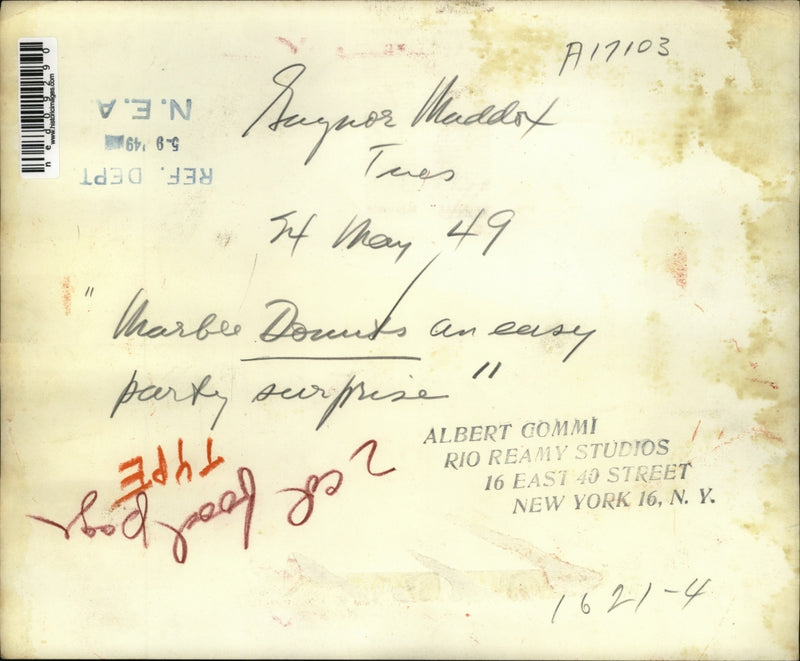 A17103
ned09290
www.historicimages.com
REF. DEPT.
5-9 '49
N.E.A
Gaynor Maddox
Tues
24 May 49
"Marble Donuts an easy
party surprise"
ALBERT GOMMI
RIO REAMY STUDIOS
16 EAST 40 STREET
NEW YORK 16, N. Y.
TYPE
2 col food page
1621-4